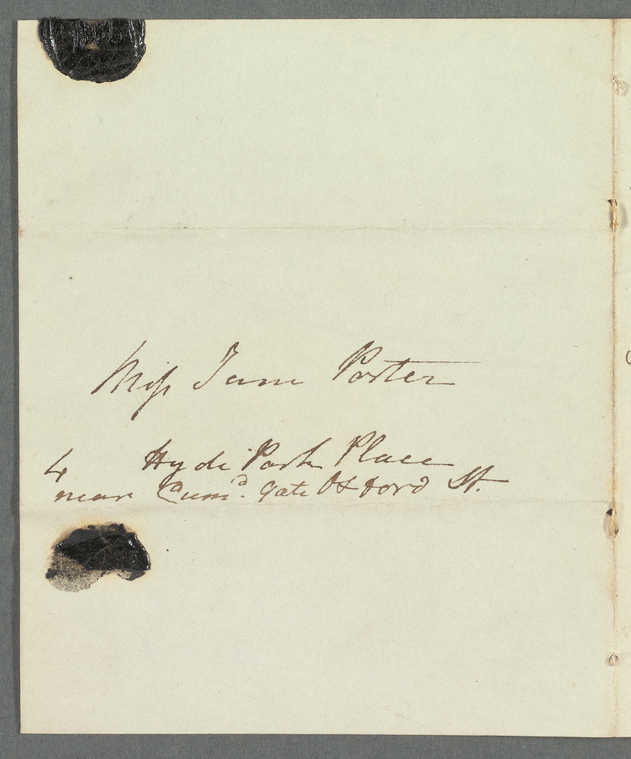 Miss Jane Porter
4 Hyde Park Place
near Cumd. Gate Oxford St.